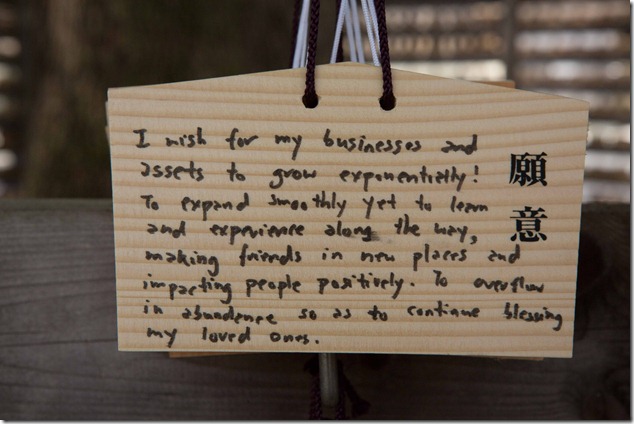 I wish for my businesses and
assets to grow exponentially!
To expand smoothly yet to learn
and experience along the way,
making friends in new places and
impacting people positively. To overflow
in abundence so as to continue blessing
my loved ones.
願意